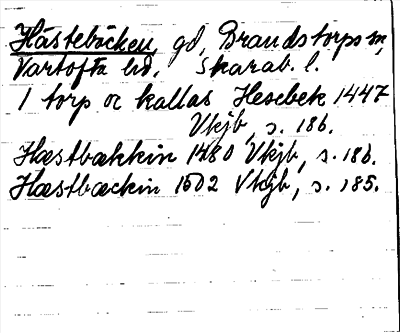 Hästebäcken, gd, Brandstorps sn,
Vartofta hd. Skarab. l.
1 torp oc kallas Hesebek 1447
Vkjb, s. 186.
Hæstbækkin 1480 Vkjb, s. 186.
Hæstbæckin 1502 Vkjb, s. 185.